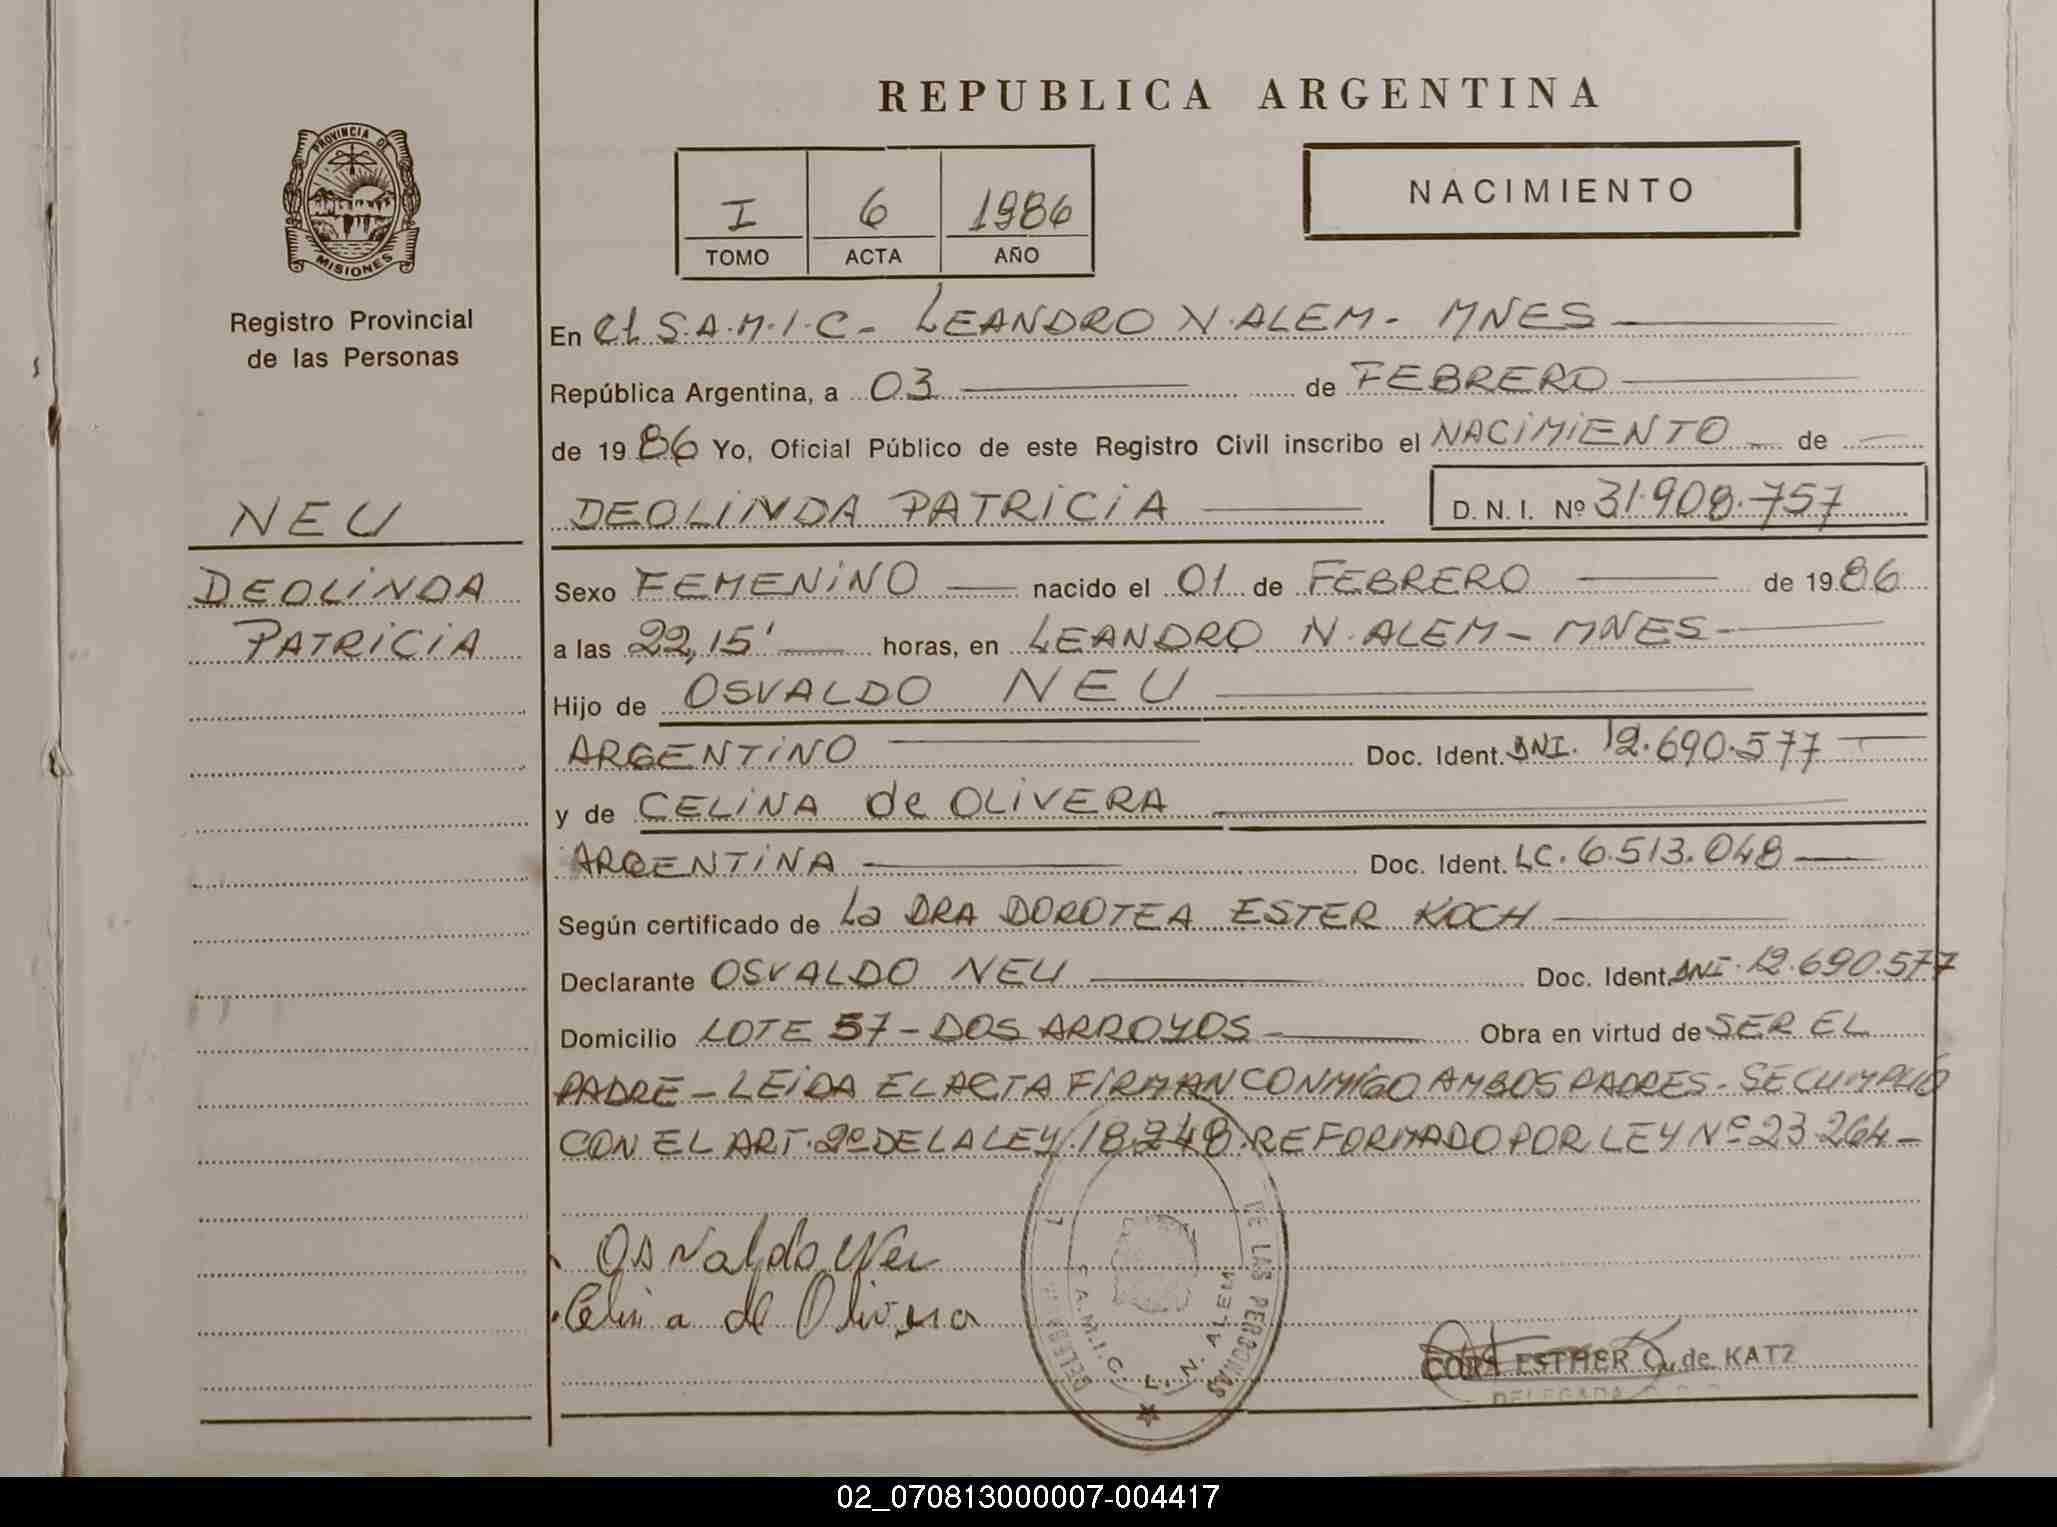 REPUBLICA ARGENTINA
PROVINCIA DE
MISIONES
Registro Provincial
de las Personas
I 6 1986
TOMO ACTA AÑO
NACIMIENTO
En el S.A.M.I.C- LEANDRO N. ALEM- MNES
República Argentina, a 03 de FEBRERO
de 1986 Yo, Oficial Público de este Registro Civil inscribo el NACIMIENTO de
DEOLINDA PATRICIA D. N. I. Nº 31.908.757
NEU
DEOLINDA
PATRICIA
Sexo FEMENINO nacido el 01 de FEBRERO de 1986
a las 22,15' horas, en LEANDRO N. ALEM- MNES-
Hijo de OSVALDO NEU
ARGENTINO Doc. Ident. DNI. 12.690.577
y de CELINA de OLIVERA
ARGENTINA Doc. Ident. LC. 6.513.048
Según certificado de La DRA DOROTEA ESTER KOCH
Declarante OSVALDO NEU Doc. Ident. DNI. 12.690.577
Domicilio LOTE 57- DOS ARROYOS Obra en virtud de SER EL
PADRE- LEIDA EL ACTA FIRMAN CONMIGO AMBOS PADRES- SE CUMPLIÓ
CON EL ART. 2º DE LA LEY 18.248 REFORMADO POR LEY Nº 23.264-
Osvaldo Neu
Celina de Olivera
DE LAS PERSONAS
S.A.M.I.C. L. N. ALEM
ESTHER de KATZ
DELEGADA
02_070813000007-004417